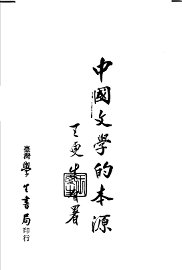 中國文學的本源
王更生著
臺灣學生書局印行